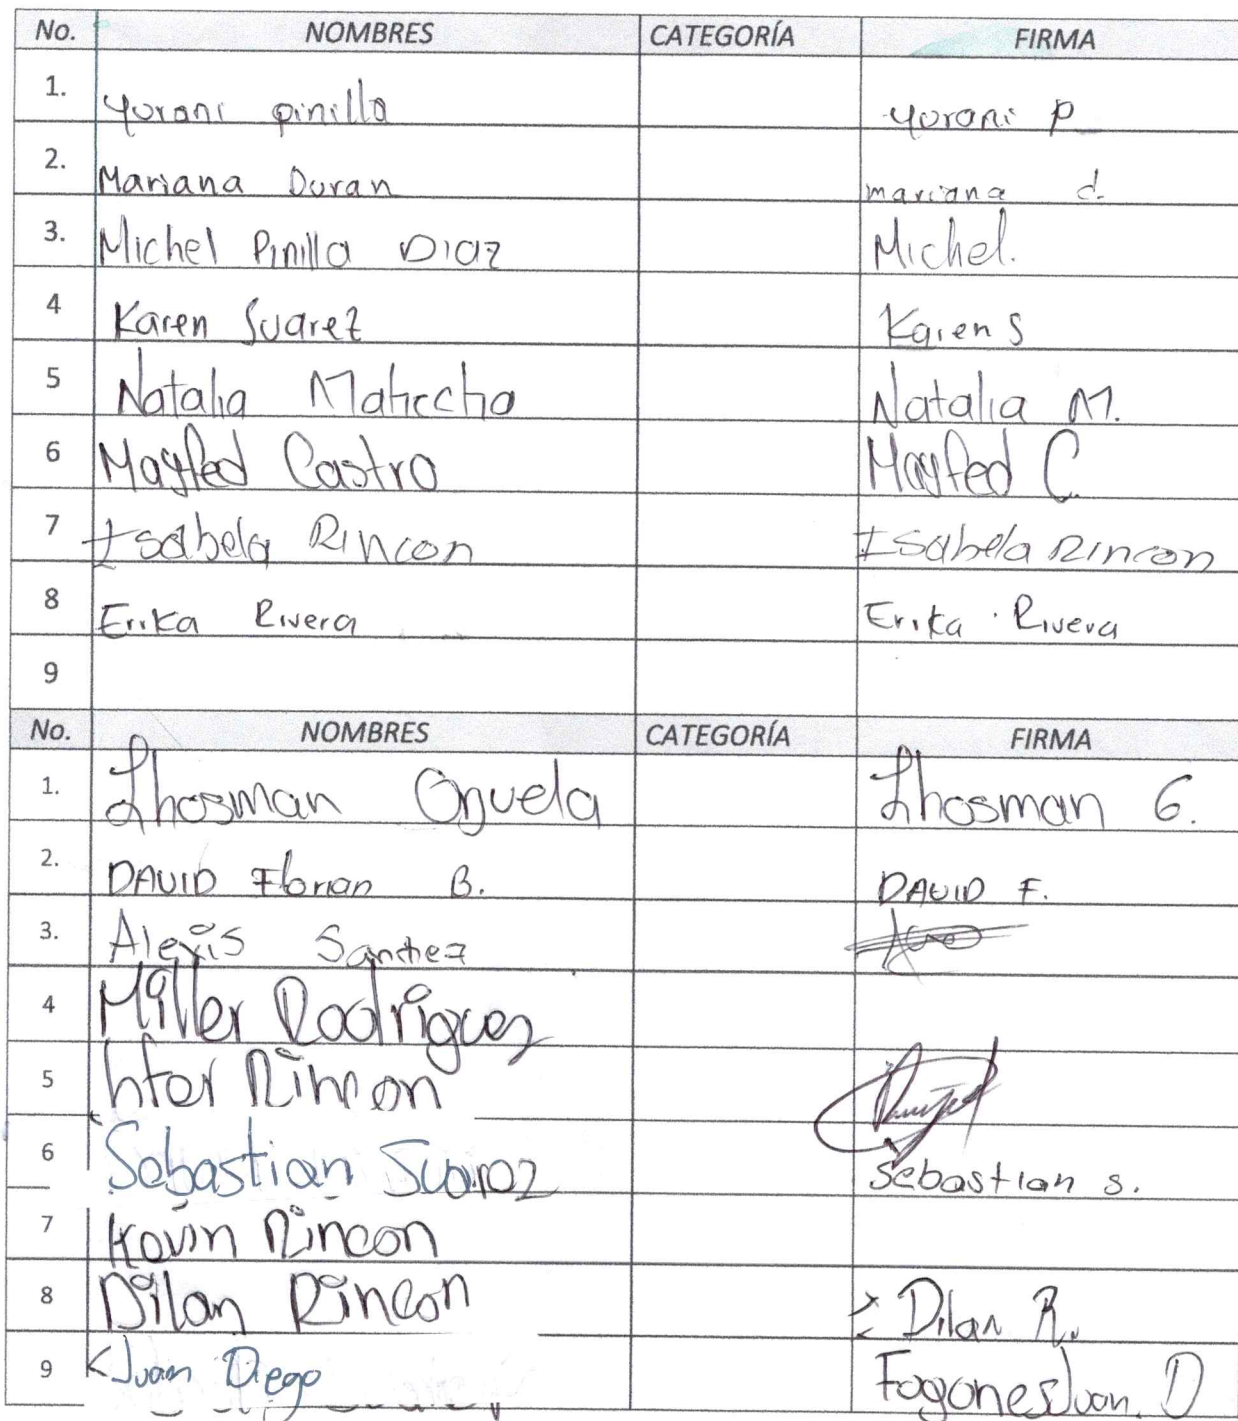 No. NOMBRES CATEGORÍA FIRMA
1. Yorani pinilla yorani p
2. Mariana Duran mariana d.
3. Michel Pinilla DIaz Michel.
4 Karen Suarez Karen S
5 Natalia Mahecha Natalia M.
6 Mayfed Castro Mayfed C.
7 Isabela Rincon Isabela Rincon
8 Erika Rivera Erika Rivera
9
No. NOMBRES CATEGORÍA FIRMA
1. Jhosman Jhosman G.
2. DAVID Florian B. DAVID F.
3. Alexis Sanchez
4 Miller Rodriguez
5 Rincon
6 Sebastian Suarez Sebastian s.
7 Kevin Rincon
8 Dilan Rincon Dilan R.
9 Juan Diego Juan. D